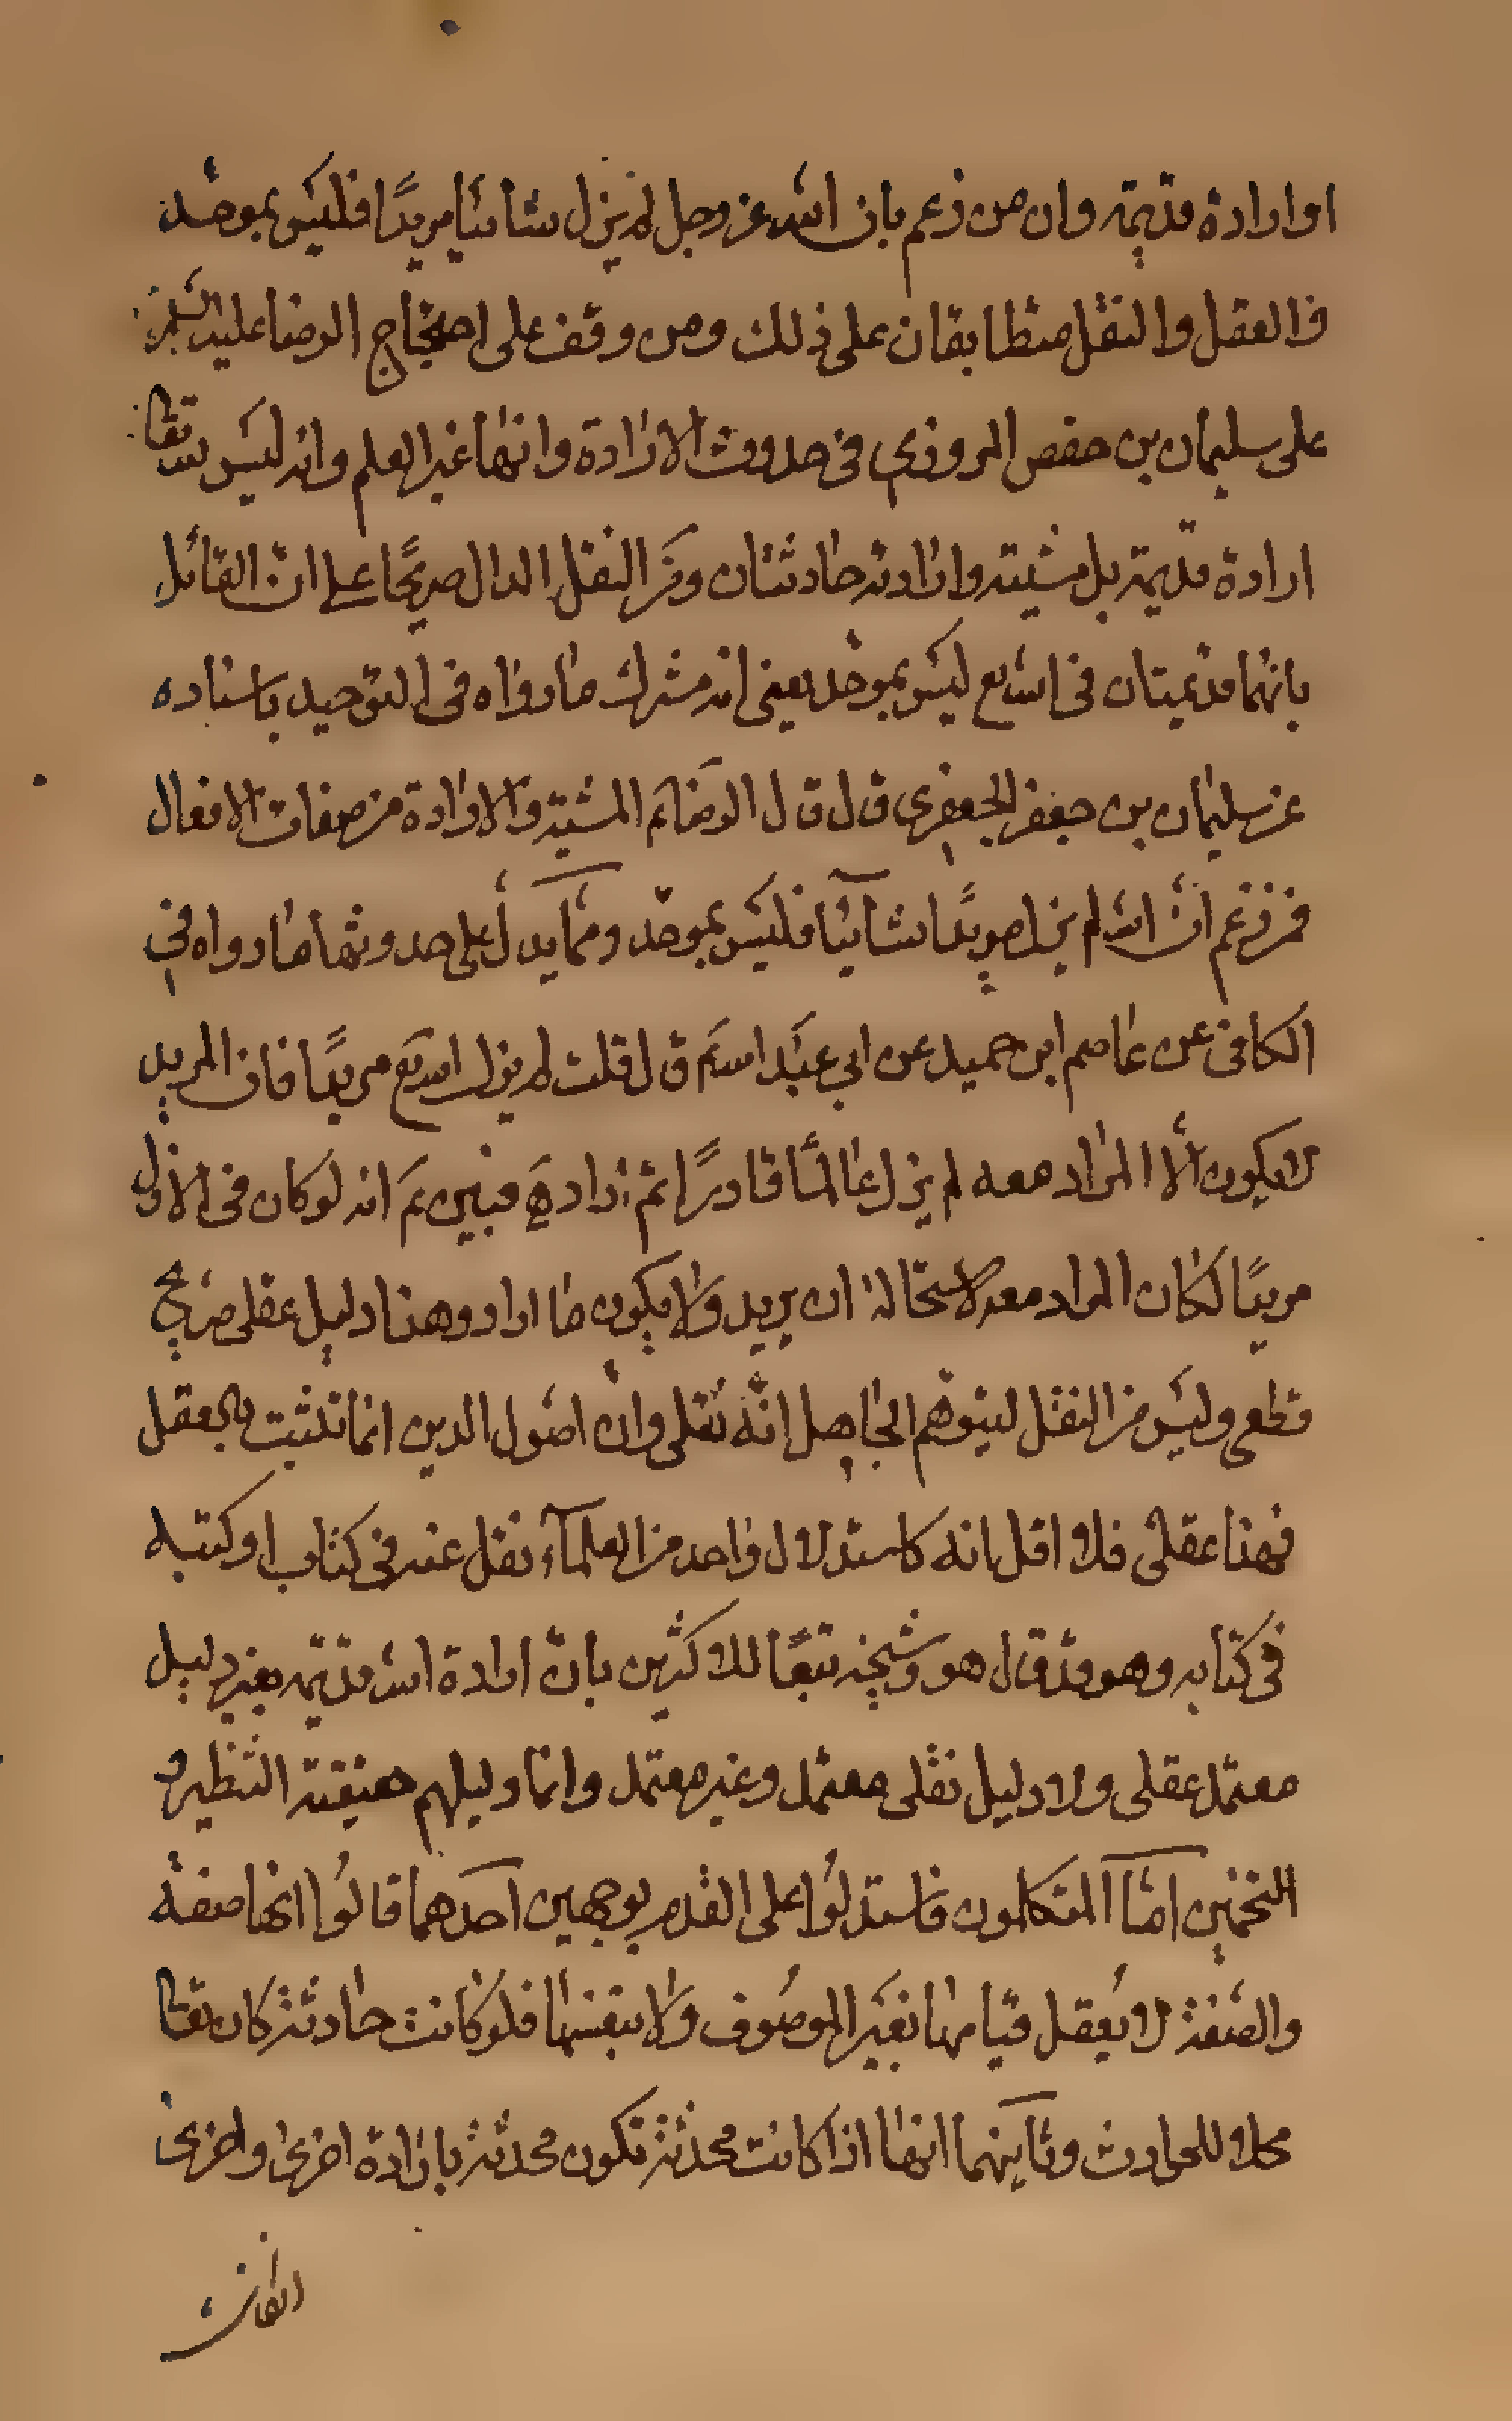 او ارادة قديمة وان من زعم بان الله عز وجل لم يزل شائيا مريدًا فليس بموحّد
فالعقل والنقل متطابقان على ذلك ومن وقف على احتجاج الرضا عليه السلم
على سليمان بن حفص المروزي في حدوث الارادة وانها غير العلم وانه ليس لله تعالى
ارادة قديمة بل مشيته وارادته حادثتان ومن النقل الدال صريحًا على انّ القائل
بانهما قديمتان في الله تع ليس بموحّد يعني انه مشرك ما رواه في التوحيد باسناده
عن سليمان بن جعفر الجعفري قال قال الرضا ع م المشية والارادة من صفات الافعال
فمن زعم انّ الله لم يزل مريدًا شائيًا فليس بموحّد ومما يدل على حدوثها ما رواه في
الكافي عن عاصم ابن حميد عن ابي عبد الله ع م قال قلت لم يزل الله تع مريدًا فان المريد
لا يكون الّا المراد معه لم يزل عالمًا قادرًا ثم اراد فبين ع م انه لو كان في الازل
مريدًا لكان المراد معه لاستحالة ان يريد ولا يكون ما اراد وهذا دليل عقلي صريح
قطعي وليس من النقل ليتوهّم الجاهل انّه نقلي وانّ اصول الدين انما تثبت بالعقل
فهذا عقلي فلا اقل انه كاستدلال واحد من العلمآء نقل عنه في كتاب او كتبه
في كتابه وهو قد قال هو وشيخه تبعًا للاكثرين بانّ ارادة الله قديمة بغير دليل
معتمد عقلي ولا دليل نقلي معتمد وغير معتمد وانما دليلهم حقيقة التنظير و
التخمين امّا المتكلمون فاستدلُوا على القدم بوجهين احدهما قالُوا انها صفة
والصّفة لا يُعقل قيامها بغير الموصُوف ولا بنفسها فلو كانت حادثة كان تعالى
محلا للحوادث وثانيهما انها اذا كانت محدثة تكون محدثة بارادة اخرى واخرى